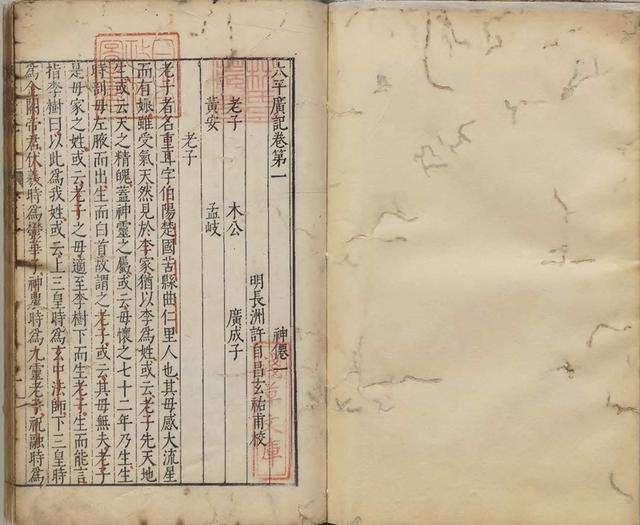 太平廣記卷第一 神僊一
明長洲許自昌玄祐甫校
老子 木公 廣成子
黃安 孟岐
老子
老子者名重耳字伯陽楚國苦縣曲仁里人也其母感大流星
而有娠雖受氣天然見於李家猶以李爲姓或云老子先天地
生或云天之精魄蓋神靈之屬或云母懷之七十二年乃生生
時剖母左腋而出生而白首故謂之老子或云其母無夫老子
是母家之姓或云老子之母適至李樹下而生老子生而能言
指李樹曰以此爲我姓或云上三皇時爲玄中法師下三皇時
爲金闕帝君伏羲時爲鬱華子神農時爲九靈老子祝融時爲